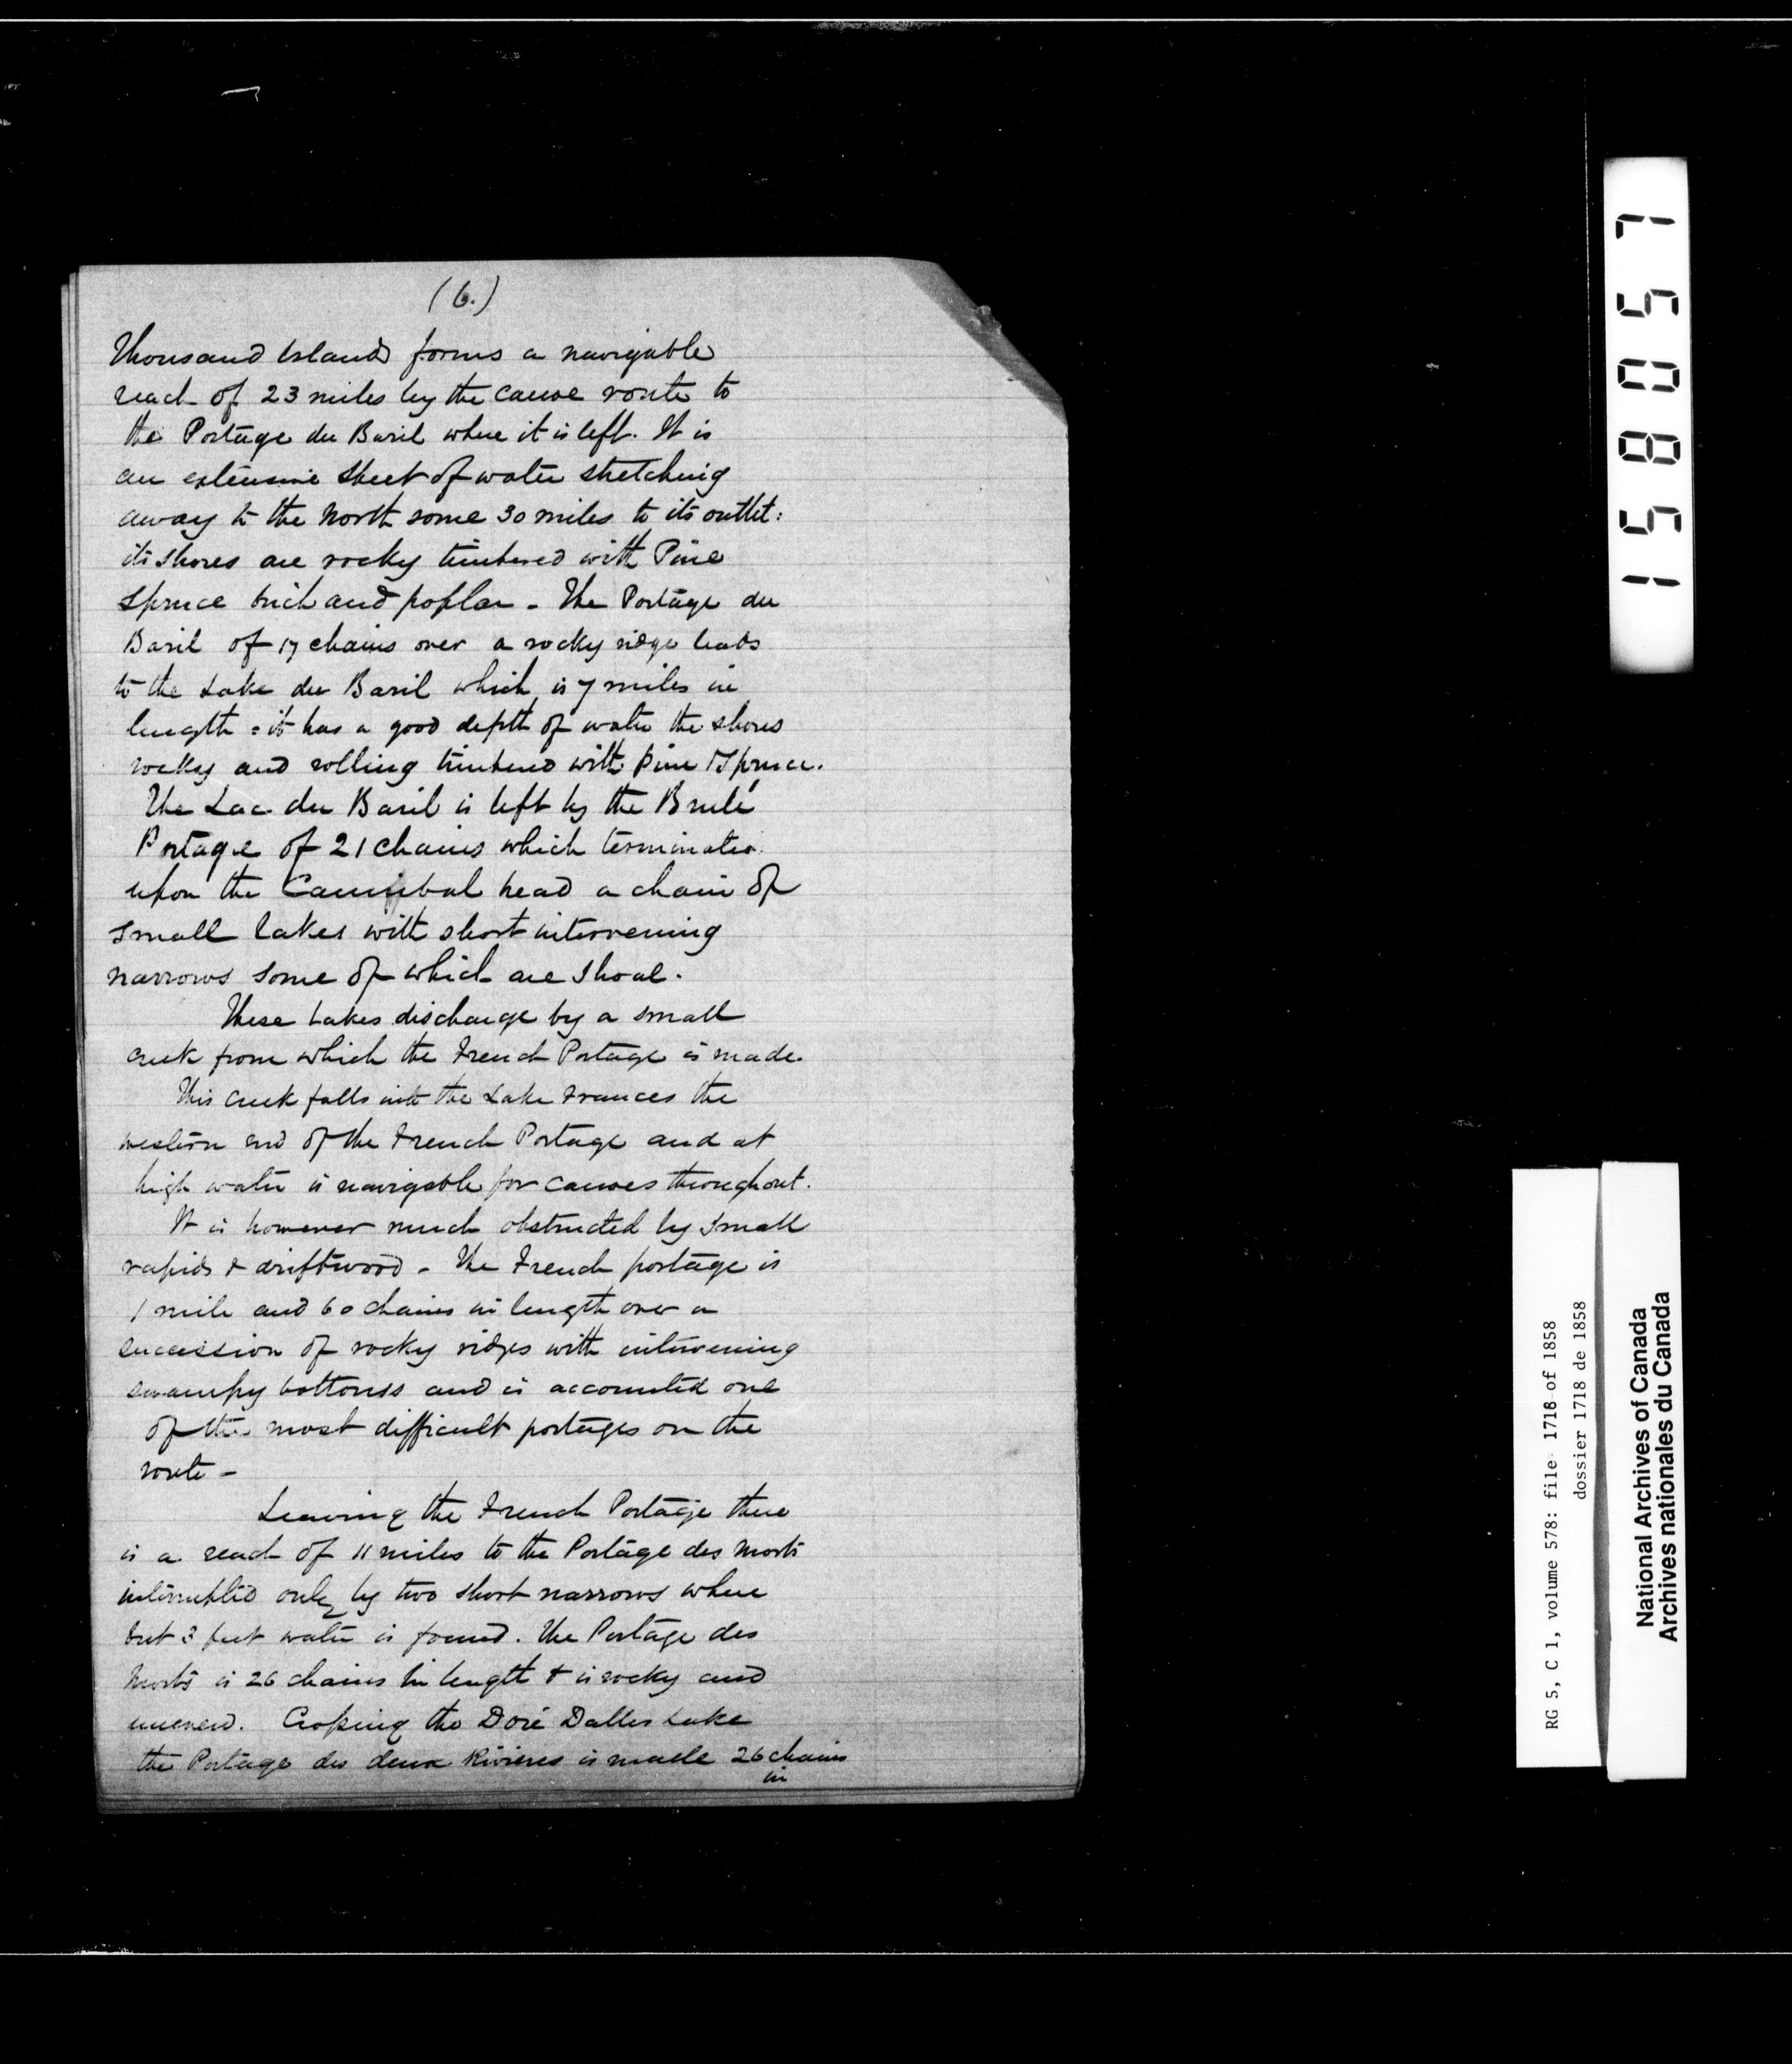 (6.)
Thousand Islands forms a navigable
reach of 23 miles by the canoe route to
the Portage du Baril where it is left. It is
an extensive sheet of water stretching
away to the north some 30 miles to its outlet:
its shores are rocky timbered with Pine
Spruce birch and poplar - The Portage du
Baril of 17 chains over a rocky ridge leads
to the Lake du Baril which is 7 miles in
length : it has a good depth of water the shores
rocky and rolling timbered with pine & Spruce.
The Lac du Baril is left by the Brulé
Portage of 21 chains which terminates
upon the Cannibal head a chain of
small lakes with short intervening
narrows some of which are shoal.
These Lakes discharge by a small
creek from which the French Portage is made.
This creek falls into the Lake Frances the
western end of the French Portage and at
high water is navigable for canoes throughout.
It is however much obstructed by small
rapids & driftwood - The French portage is
1 mile and 60 chains in length over a
succession of rocky ridges with intervening
swampy bottoms and is accounted one
of the most difficult portages on the
route -
Leaving the French Portage there
is a reach of 11 miles to the Portage des Morts
interrupted only by two short narrows where
but 3 feet water is found. The Portage des
Morts is 26 chains in length & is rocky and
uneven. Crossing the Doré Dalles Lake
the Portage des deux Rivieres is made 26 chains
in
158057
RG 5, C 1, volume 578: file 1718 of 1858
dossier 1718 de 1858
National Archives of Canada
Archives nationales du Canada